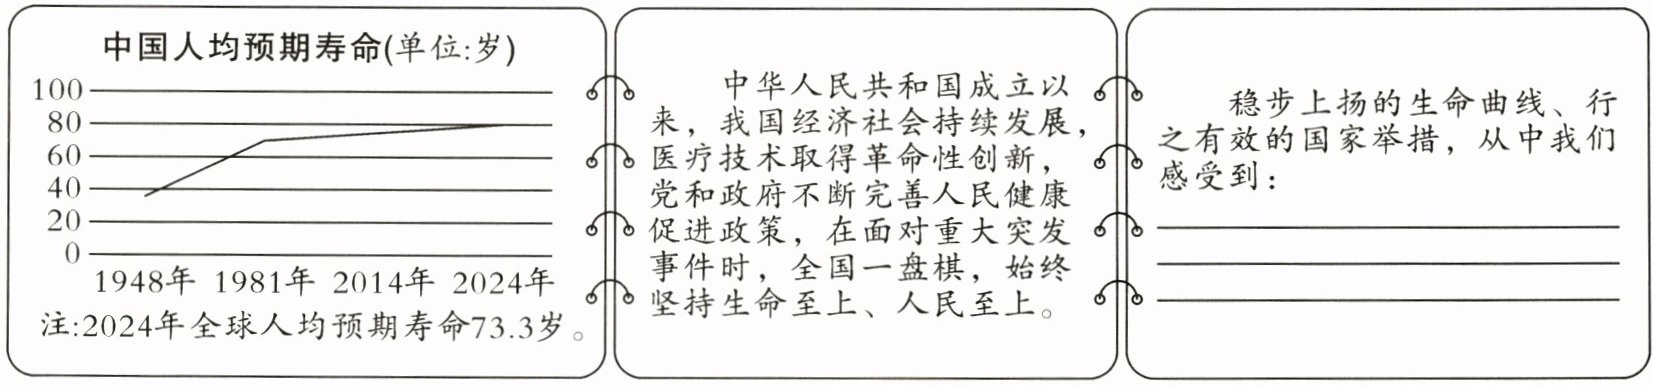 中国人均预期寿命(单位:岁)
100
80
60
40
20
0
1948年 1981年 2014年 2024年
注:2024年全球人均预期寿命73.3岁。
中华人民共和国成立以
来，我国经济社会持续发展，
医疗技术取得革命性创新，
党和政府不断完善人民健康
促进政策，在面对重大突发
事件时，全国一盘棋，始终
坚持生命至上、人民至上。
稳步上扬的生命曲线、行
之有效的国家举措，从中我们
感受到：